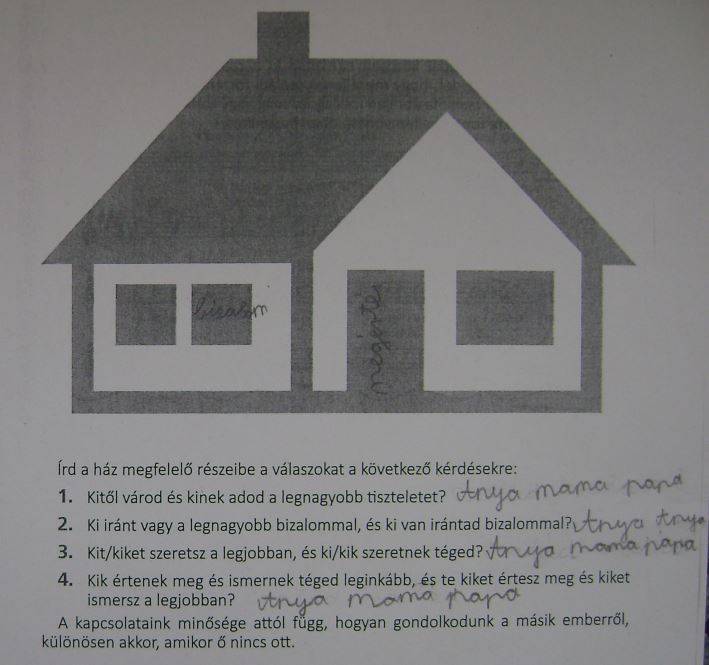 bizalom
megértés
Írd a ház megfelelő részeibe a válaszokat a következő kérdésekre:
1. Kitől várod és kinek adod a legnagyobb tiszteletet? Anya mama papa
2. Ki iránt vagy a legnagyobb bizalommal, és ki van irántad bizalommal? Anya Anya
3. Kit/kiket szeretsz a legjobban, és ki/kik szeretnek téged? Anya mama papa
4. Kik értenek meg és ismernek téged leginkább, és te kiket értesz meg és kiket
ismersz a legjobban? Anya mama papa
A kapcsolataink minősége attól függ, hogyan gondolkodunk a másik emberről,
különösen akkor, amikor ő nincs ott.